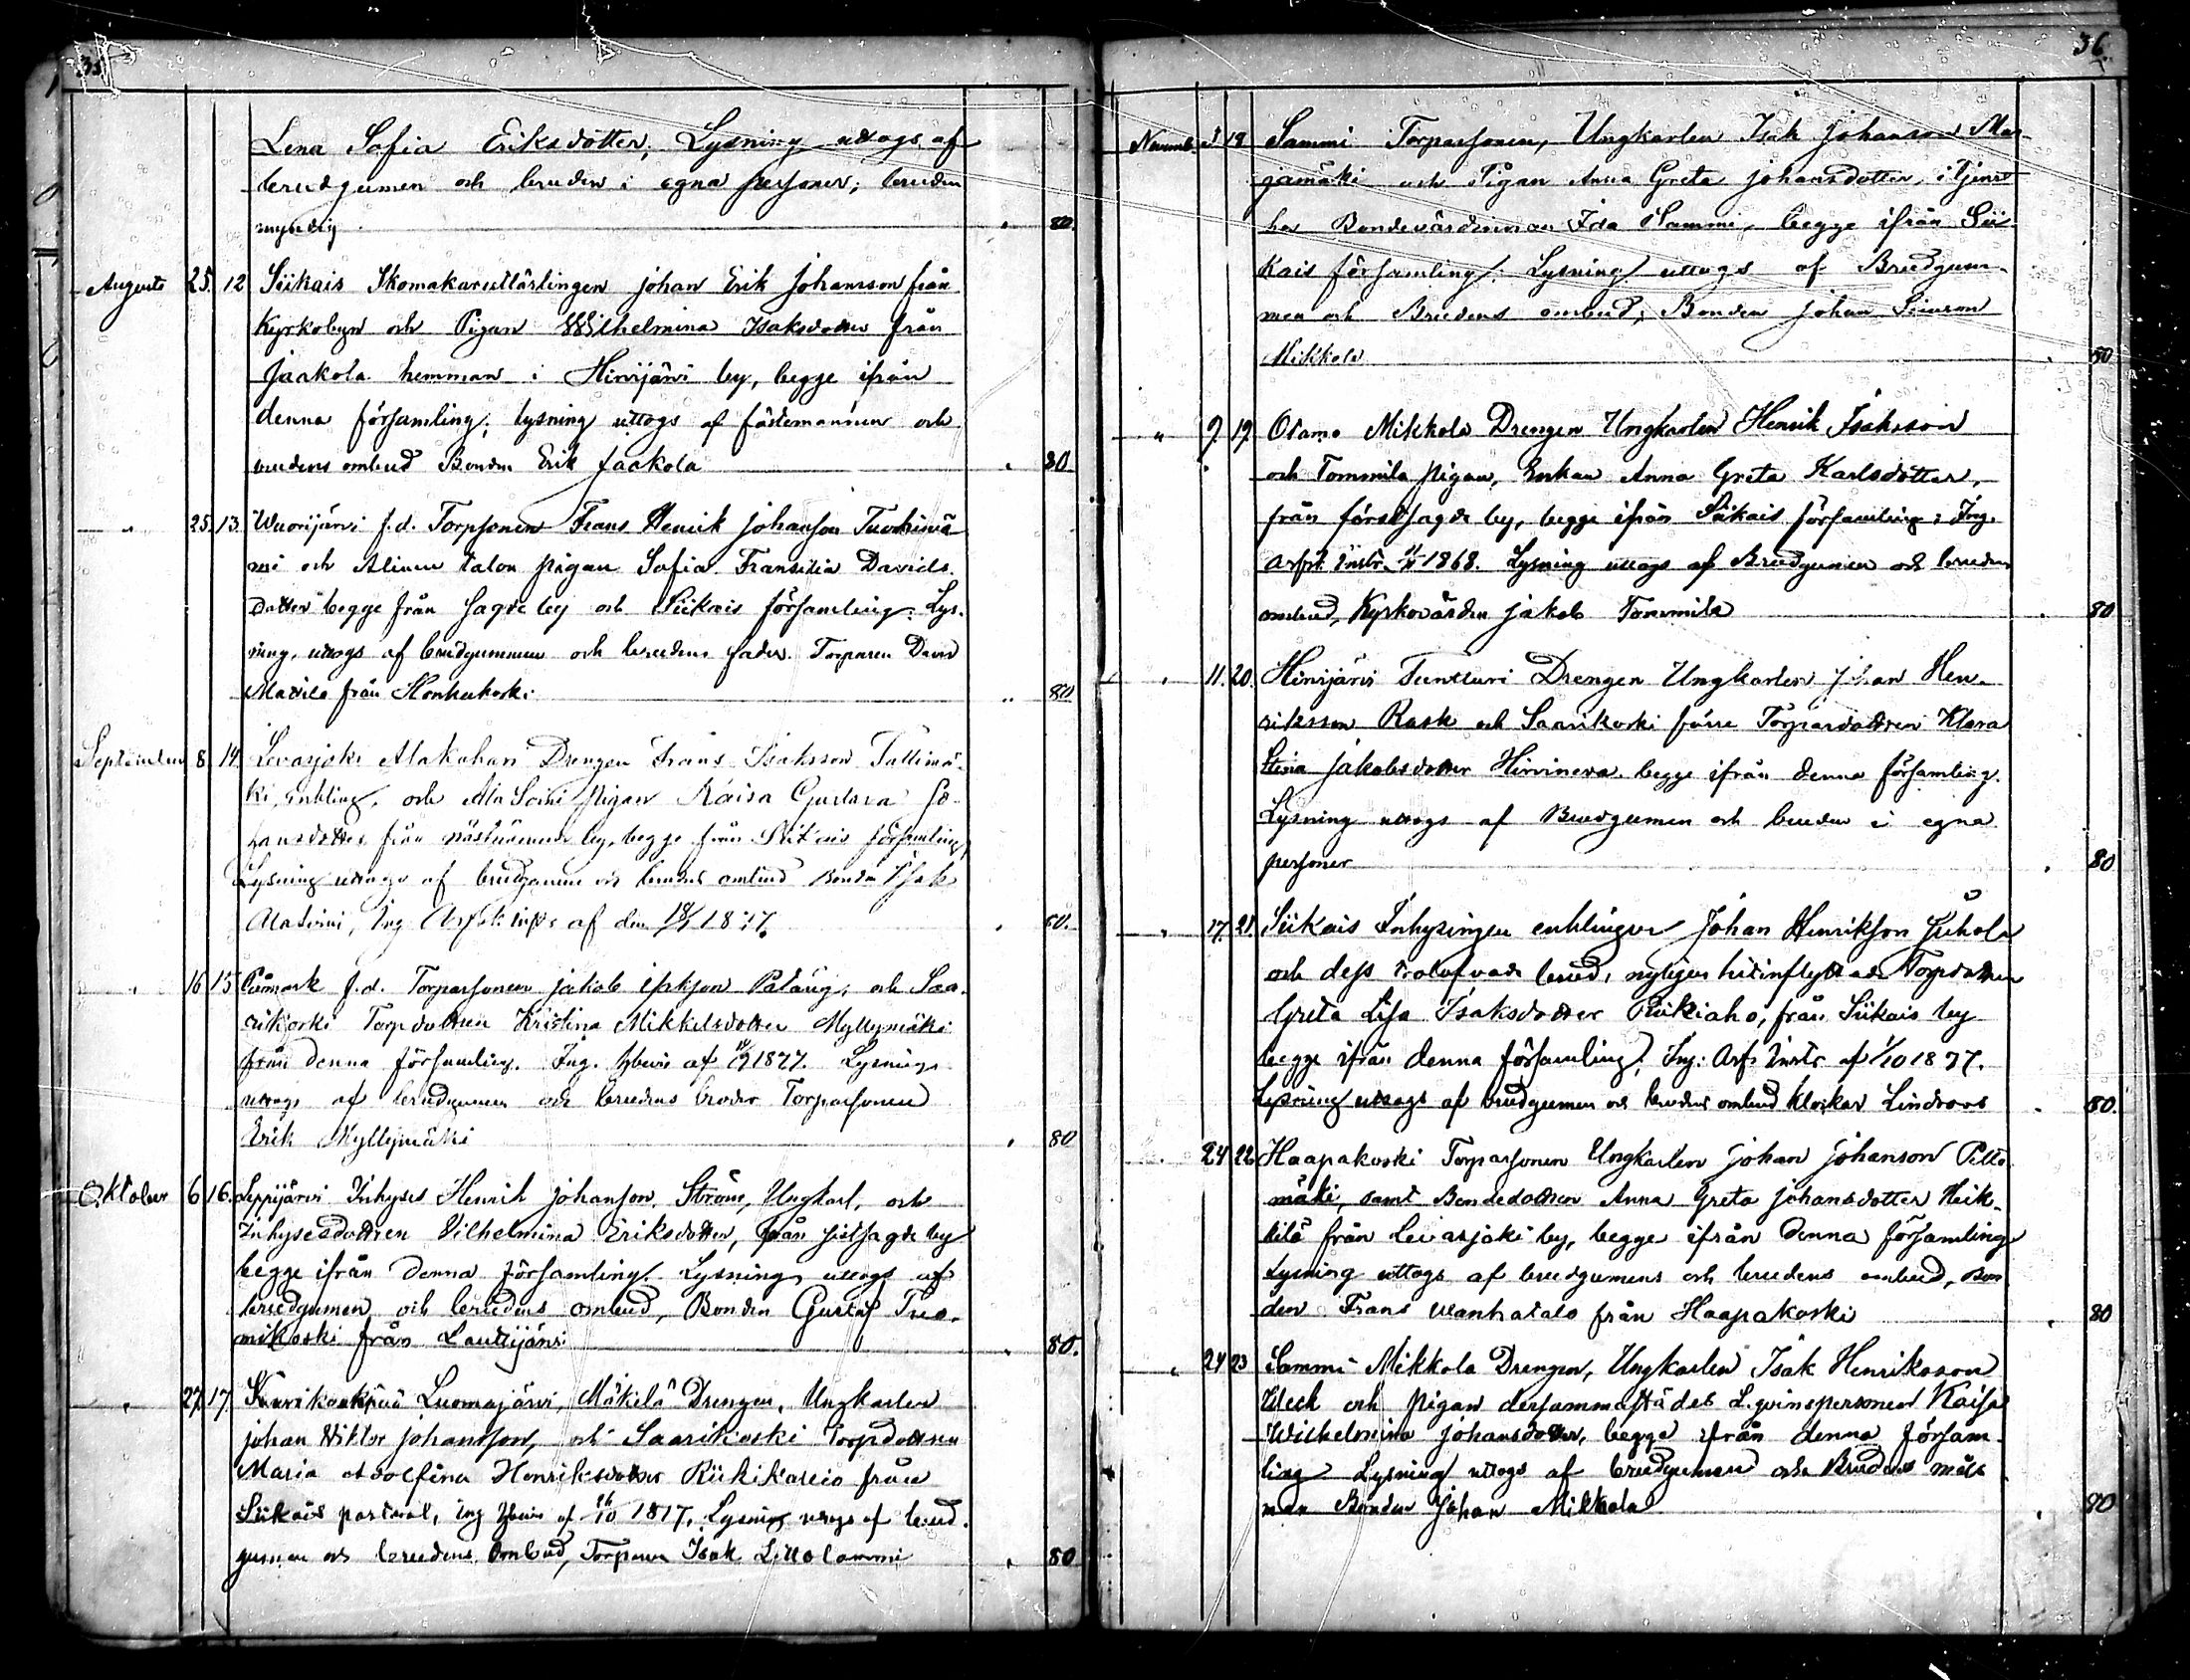 35
Lena Sofia Eriksdotter; Lysning uttogs af
brudgumen och bruden i egna personer; bruden
myndig " 80
Augusti 25. 12 Siikais Skomakarelärlingen Johan Erik Johansson från
Kyrkobyn och Pigan Wilhelmina Isaksdotter från
Jaakola hemman i Hirvijärvi by, begge ifrån
denna församling; lysning uttogs af fästemannen och
brudens ombud Bonden Erik Jaakola " 80
" 25. 13. Wuorijärvi f.d. Torpsonen Frans Henrik Johanson
mi och talon pigan Sofia Davids
dotter begge från sagde by och Siikais församling: Lys.
ning, uttogs af brudgummen och brudens fader. Torparen David
Mattila från Honkakoski " 80
September 8 14. Levasjoki Alakahari Drengen Frans Isaksson Tallimä-
ki, enkling, och Ala Somi pigan Kaisa Gustava Jo-
hansdotter från nästnämnde by, begge från Siikais församling
Lysning uttogs af brudgumen och brudens ombud Bonden Isak
Ala , Ing Arfskiftes af den 1877. " 80.
" 16 15 Påmark f.d. Torparsonen Jakob och Saa-
rikoski Torpdottren Kristina Mikkelsdotter Myllymäki
från denna församling. Ing. af 1877. Lysning
uttogs af brudgumen och brudens broder Torparsonen
Erik Myllymäki " 80
Oktober 6 16. Leppijärvi Inhyses Henrik Johanson. Ström, Ungkarl, och
Inhysesdottren Vilhelmina Eriksdotter, från sistsagde by
begge ifrån denna församling. Lysning uttogs af
brudgumen och brudens ombud, Bonden Gustaf Tuo-
mikoski från Lauttijärvi " 80.
" 27. 17. Luomajärvi, Mäkilä Drengen, Ungkarlen
Johan Viktor Johansson, och Saarikoski Torpdottren
Maria Adolfina Henriksdotter från
Siikais pastorat, ing af 1877, Lysning uttogs af brud.
gumen och brudens Ombud, Torparen Isak " 80
36
Novemb. 3 18 Sammi Torparsonen, Ungkarlen Isak Johanson Ma-
jamäki och Pigan Anna Greta Johansdotter, i tjenst
hos Bondevärdinnan Ida Sammi, begge ifrån Sii
kais församling: Lysning uttogs af Brudgum-
men och Brudens ombud; Bonden Johan Simson
Mikkola " 80
" 9. 19. Otamo Mikkola Drengen Ungkarlen Henrik Isaksson
och Tommila pigan, Enkan Anna Greta Karlsdotter,
från förstsagde by, begge ifrån Siikais församling; Ing.
Arfsk. Instr. 1868. Lysning uttogs af Brudgumen och bruden
ombud, Kyrkovärden Jakob Tommila " 80
" 11. 20. Hirvijärvi Tunturi Drengen Ungkarlen Johan Hen-
riksson Rask och Saarikoski förre Torpardottren Klara
Stina Jakobsdotter Hirvineva. begge ifrån denna församling.
Lysning uttogs af Brudgumen och bruden i egna
personer " 80
" 17. 21. Siikais Inhysingen enklingen Johan Henrikson Juhola
och dess trolofvade brud, nyligen hitinflyttade Torpdottren
Greta Lisa Isaksdotter Riikiaho, från Siikais by
begge ifrån denna församling. Ing: Arfs Instr af 1/10 1877.
Lysning uttogs af brudgumen och brudens ombud klockar Lindroos " 80.
" 24 22 Haapakoski Torparsonen Ungkarlen Johan Johanson Petto
mäki, samt Bondedottren Anna Greta Johansdotter Heik-
kilä från Levasjoki by, begge ifrån denna församling
Lysning uttogs af brudgumens och brudens ombud, Bon
den Frans Wanhatalo från Haapakoski " 80
" 24 23 Sammi Mikkola Drengen, Ungkarlen Isak Henriksson
Week och pigan dersammastädes L. qvinspersonen Kaisa
Wilhelmina Johansdotter, begge ifrån denna försam
ling Lysning uttogs af brudgumen och Brudens måls
man Bonden Johan Mikkola " 80